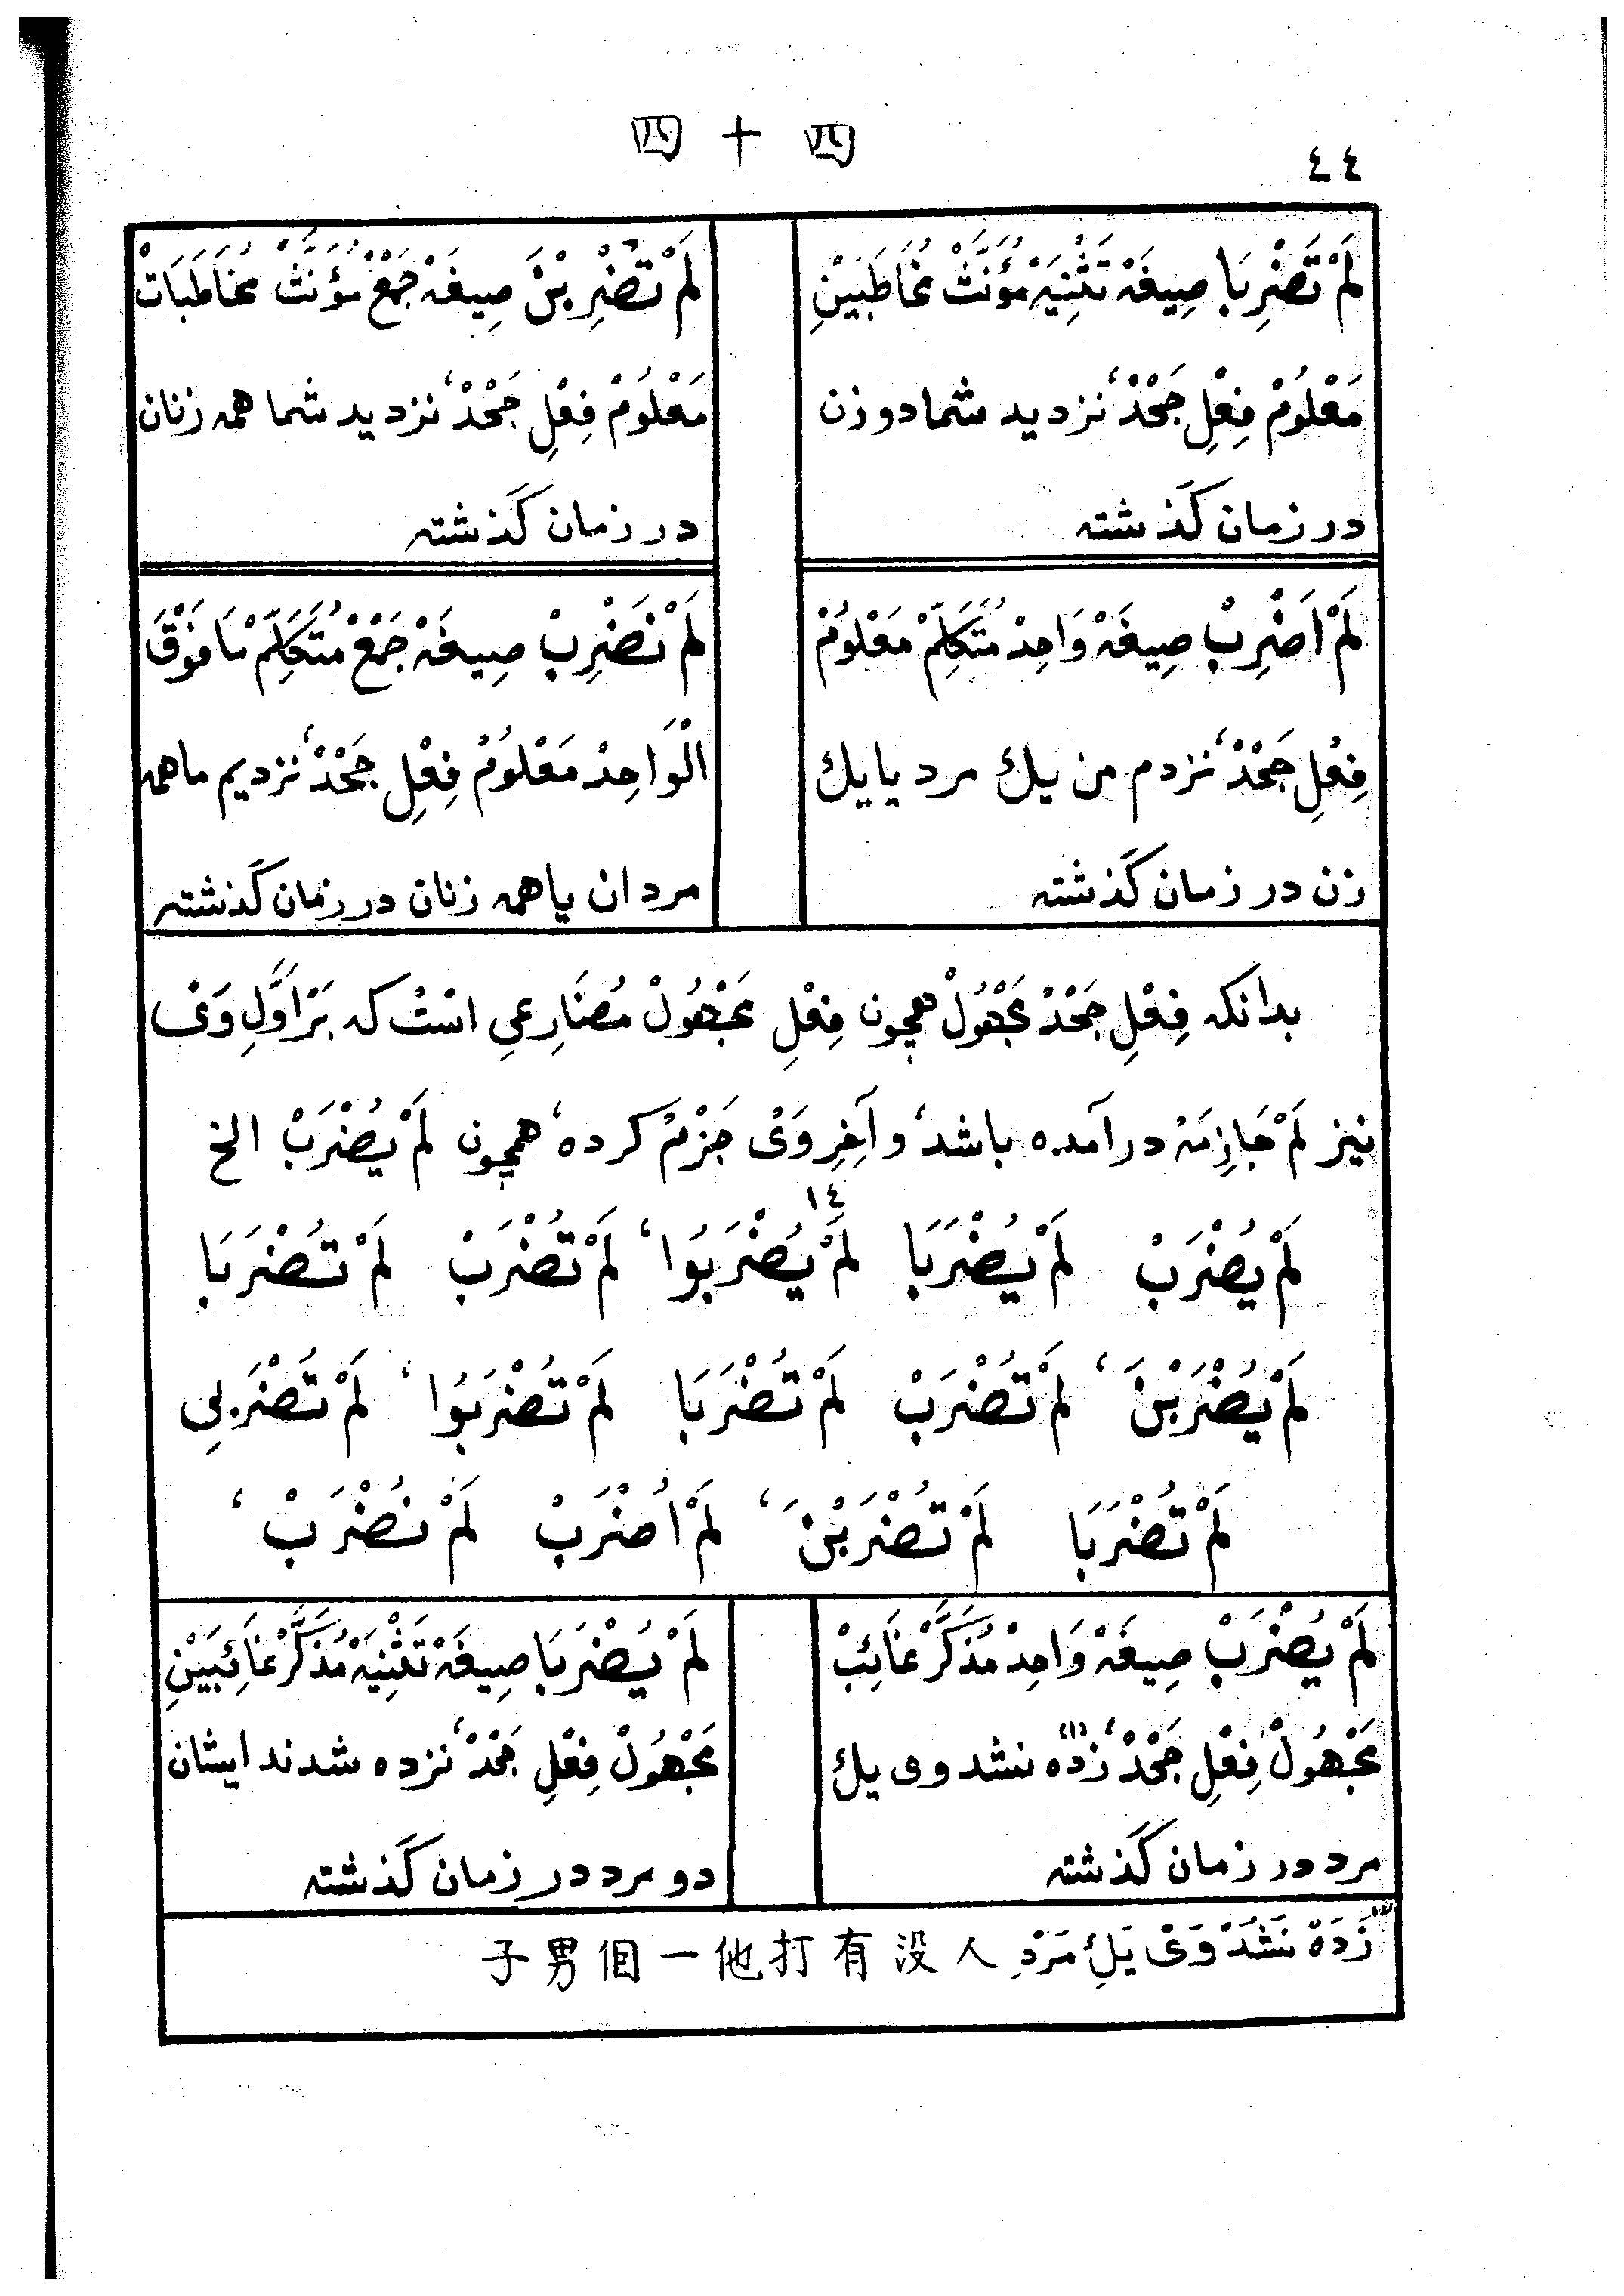 四十四
٤٤
لَمْ تَضْرِبَا صِيغَهْ تَثْنِيَهْ مُؤَنَّثْ مُخَاطَبَيْنِ
مَعْلُومْ فِعْلِ جَحْدْ، نزدید شما دو زن
در زمان گذشته
لَمْ تَضْرِبْنَ صِيغَهْ جَمْعْ مُؤَنَّثْ مُخَاطَبَاتْ
مَعْلُومْ فِعْلِ جَحْدْ، نزدید شما همه زنان
در زمان گذشته
لَمْ اَضْرِبْ صِيغَهْ وَاحِدْ مُتَكَلِّمْ مَعْلُومْ
فِعْلِ جَحْدْ، نزدم من یك مرد یا یك
زن در زمان گذشته
لَمْ نَضْرِبْ صِيغَهْ جَمْعْ مُتَكَلِّمْ مَا فَوْقَ
الْوَاحِدْ مَعْلُومْ فِعْلِ جَحْدْ، نزدیم ما همه
مردان یا همه زنان در زمان گذشته
بدانکه فِعْلِ جَحْدْ مَجْهُولْ همچون فِعْلِ مَجْهُولْ مُضَارِعِي اسْتْ که بَرْ اَوَّلِ وَىْ
نیز لَمْ جَازِمَهْ در آمده باشد، و آخِرِ وَىْ جَزْمْ کرده، همچون لَمْ يُضْرَبْ الخ
١٤
لَمْ يُضْرَبْ لَمْ يُضْرَبَا لَمْ يُضْرَبُوا، لَمْ تُضْرَبْ لَمْ تُضْرَبَا
لَمْ يُضْرَبْنَ، لَمْ تُضْرَبْ لَمْ تُضْرَبَا لَمْ تُضْرَبُوا، لَمْ تُضْرَبِي
لَمْ تُضْرَبَا لَمْ تُضْرَبْنَ، لَمْ اُضْرَبْ لَمْ نُضْرَبْ،
لَمْ يُضْرَبْ صِيغَهْ وَاحِدْ مُذَكَّرْ غَائِبْ
مَجْهُولْ فِعْلِ جَحْدْ، زده (١) نشد وی یك
مرد در زمان گذشته
لَمْ يُضْرَبَا صِيغَهْ تَثْنِيَهْ مُذَكَّرْ غَائِبَيْنِ
مَجْهُولْ فِعْلِ جَحْدْ، نزده شدند ایشان
دو مرد در زمان گذشته
(١) زَدَهْ نَشُدْ وَىْ يَكِ مَرْدِ 人没有打他一個男子